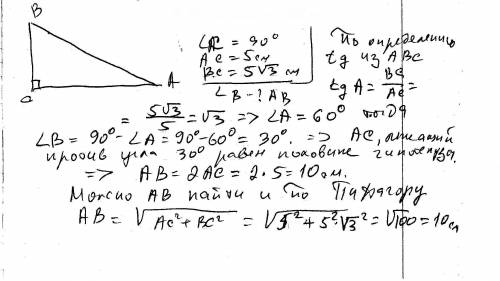 B
A
C
∠C = 90°
AC = 5 см
BC = 5√3 см
∠B - ? AB
По определению
tg из ABC
tg A = BC/AC =
= 5√3/5 = √3 => ∠A = 60°
∠B = 90° - ∠A = 90° - 60° = 30°. => AC, лежащий
против угла 30° равен половине гипотенузы.
=> AB = 2AC = 2 · 5 = 10 см.
Можно AB найти и по Пифагору
AB = √AC² + BC² = √5² + 5²√3² = √100 = 10 см